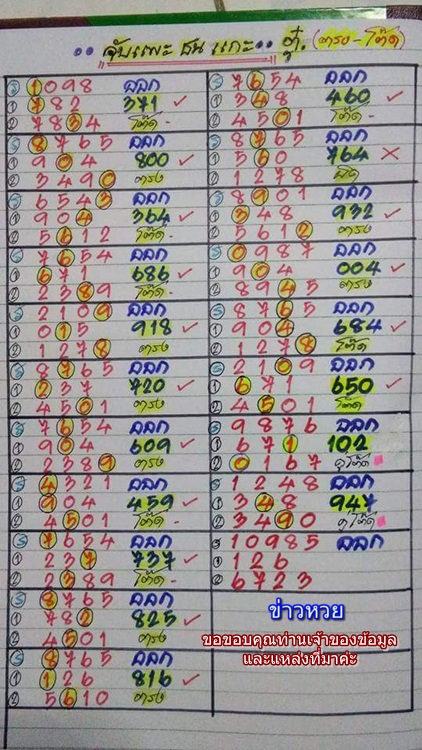 จับแพะ ชน แกะ.. ตู่. (ตรง-โต๊ด)
③ 1098 ออก
① 782 371 ✓
② 7834 โต๊ด -
③ 8765 ออก
① 904 800 ✓
② 3490 ตรง
③ 6543 ออก
① 904 364 ✓
② 5612 โต๊ด -
③ 7654 ออก
① 671 686 ✓
② 2389 โต๊ด -
③ 2109 ออก
① 015 918 ✓
② 1278 ตรง
③ 8765 ออก
① 237 720 ✓
② 4501 ตรง
③ 7654 ออก
① 904 609 ✓
② 2389 ตรง
③ 4321 ออก
① 904 459 ✓
② 4501 โต๊ด -
③ 7654 ออก
① 237 737 ✓
② 2389 โต๊ด -
③ 8765 ออก
① 782 825 ✓
② 4501 ตรง
③ 8765 ออก
① 126 816 ✓
② 5610 ตรง
③ 7654 ออก
① 348 460 ✓
② 4501 โต๊ด -
③ 8765 ออก
① 560 764 ✗
② 1278 ผิด
③ 8901 ออก
① 348 932 ✓
② 5612 ตรง
③ 0987 ออก
① 904 004 ✓
② 8945 ตรง
③ 8765 ออก
① 904 684 ✓
② 1278 โต๊ด
③ 2109 ออก
① 671 650 ✓
② 4501 โต๊ด
③ 9876 ออก
① 671 102
② 0167 คู่โต๊ด
③ 1248 ออก
① 348 947
② 3490 คู่โต๊ด
③ 10985 ออก
① 126
② 6723
ข่าวหวย
ขอขอบคุณท่านเจ้าของข้อมูล
และแหล่งที่มาค่ะ